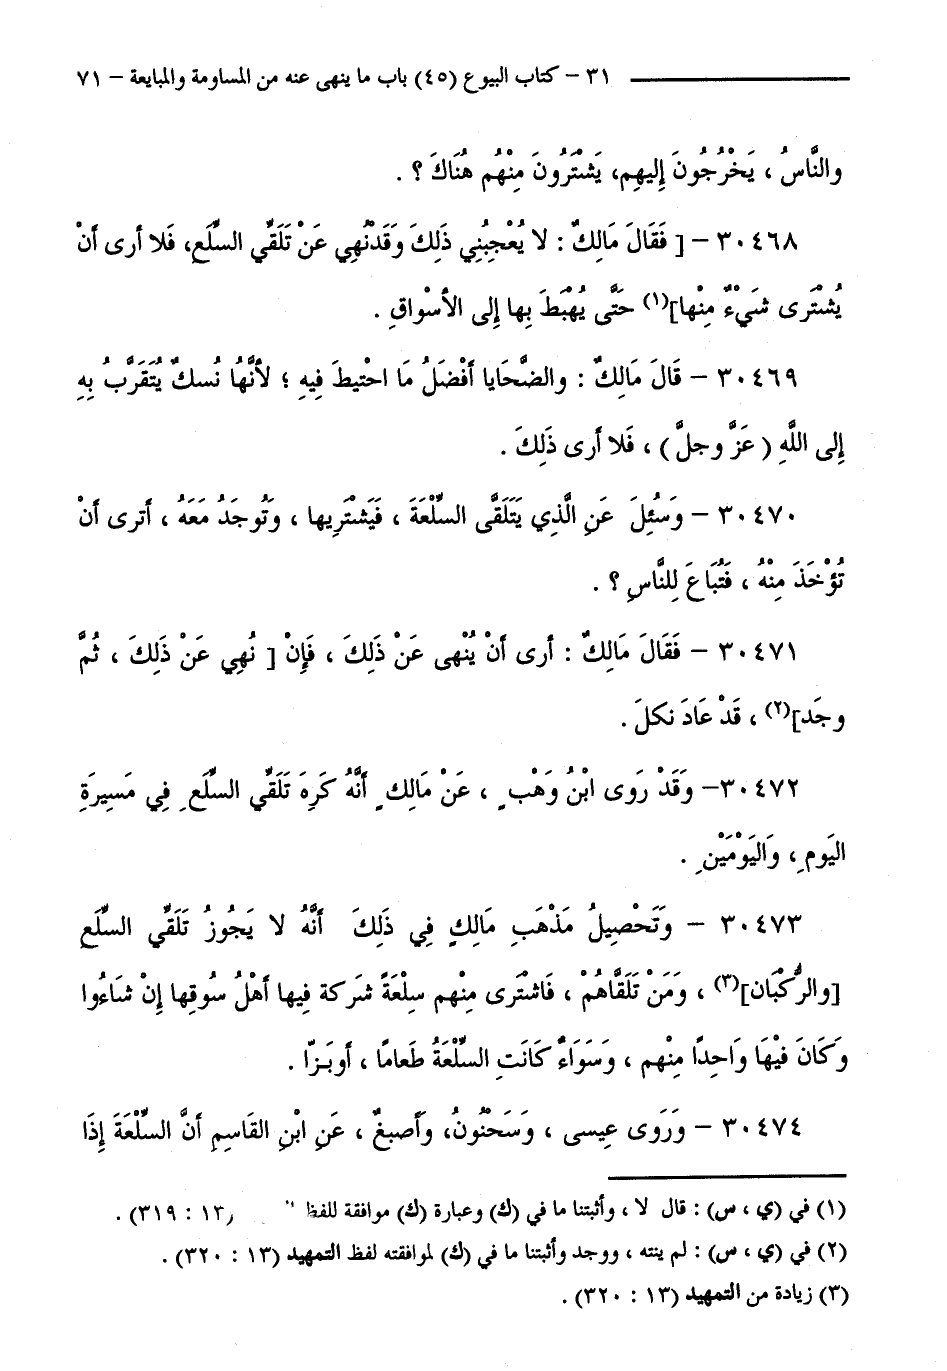 ٣١ – كتاب البيوع (٤٥) باب ما ينهى عنه من المساومة والمبايعة – ٧١
والنَّاسُ ، يَخْرُجُونَ إِليهِم، يَشْتَرُونَ مِنْهُم هُنَاكَ ؟ .
٣٠٤٦٨ – [ فَقَالَ مَالِكٌ : لا يُعْجِبُنِي ذَلِكَ وَقَدْنُهِي عَنْ تَلَقِّي السِّلَعِ، فَلا أرى أنْ
يُشْتَرى شَيْءٌ مِنْها](١) حَتَّى يُهْبَطَ بِها إِلى الأسْواقِ .
٣٠٤٦٩ – قَالَ مَالِكٌ : والضَّحَايا أفْضَلُ مَا احْتِيطَ فِيهِ ؛ لأنَّهَا نُسكٌ يُتَقَرَّبُ بِهِ
إِلى اللَّهِ ( عَزَّ وجلَّ ) ، فَلا أرى ذَلِكَ .
٣٠٤٧٠ – وَسُئِلَ عَنِ الَّذِي يَتَلَقَّى السِّلْعَةَ ، فَيَشْتَرِيها ، وَتُوجَدُ مَعَهُ ، أترى أنْ
تُؤْخَذَ مِنْهُ ، فَتُبَاعَ لِلنَّاسِ ؟ .
٣٠٤٧١ – فَقَالَ مَالِكٌ : أرى أنْ يُنْهى عَنْ ذَلِكَ ، فَإِنْ [ نُهِي عَنْ ذَلِكَ ، ثُمَّ
وجَد](٢) ، قَدْ عَادَ نكلَ .
٣٠٤٧٢– وَقَدْ رَوى ابْنُ وَهْبٍ ، عَنْ مَالِكٍ أنَّهُ كَرِهَ تَلَقِّي السِّلَعِ فِي مَسِيرَةِ
اليَومِ، وَاليَوْمَيْنِ .
٣٠٤٧٣ – وَتَحْصِيلُ مَذْهَبِ مَالِكٍ فِي ذَلِكَ أنَّهُ لا يَجُوزُ تَلَقِّي السِّلَعِ
[والرُّكْبَان](٣) ، وَمَنْ تَلَقَّاهُمْ ، فَاشْتَرى مِنْهم سِلْعَةً شَركة فِيها أهْلُ سُوقِها إِنْ شاءُوا
وَكَانَ فِيْهَا وَاحِدًا مِنْهم ، وَسَوَاءٌ كَانَتِ السِّلْعَةُ طَعامًا ، أو بَزّا .
٣٠٤٧٤ – وَرَوى عِيسى ، وَسَحْنُونُ، وَأصبغٌ ، عَنِ ابْنِ القَاسِمِ أنَّ السِّلْعَةَ إِذَا
(١) في (ي ، س) : قال لا ، وأثبتنا ما في (ك) وعبارة (ك) موافقة للفظ ١٣ : ٣١٩) .
(٢) في (ي ، س) : لم ينته ، ووجد وأثبتنا ما في (ك) لموافقته لفظ التمهيد (١٣ : ٣٢٠) .
(٣) زيادة من التمهيد (١٣ : ٣٢٠) .